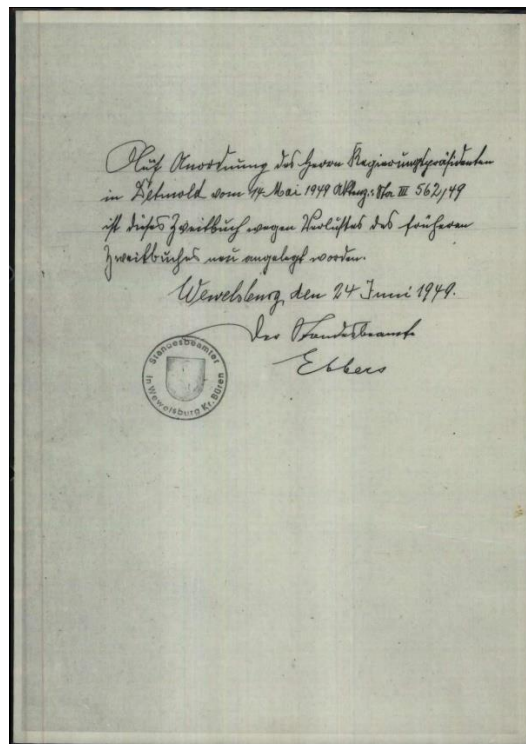 Auf Anordnung des Herrn Regierungspräsidenten
in Detmold vom 14. Mai 1949 Aktenz.: Sta III 562/49
ist dieses Zweitbuch wegen Verlustes des früheren
Zweitbuches neu angelegt worden.
Wewelsburg, den 24 Juni 1949.
Der Standesbeamte
Ebbers
Standesbeamter
in Wewelsburg Kr. Büren